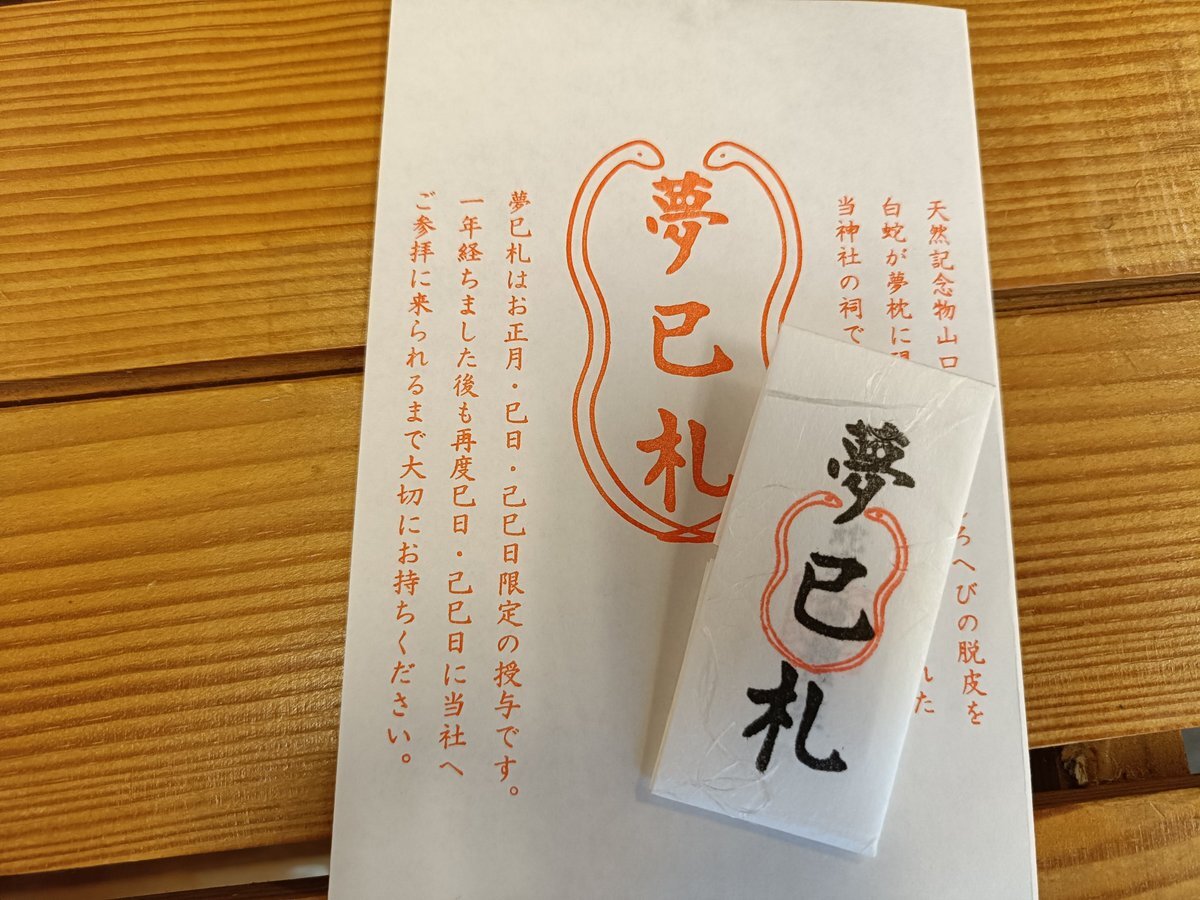 天然記念物山口 ろへびの脱皮を
白蛇が夢枕に れた
当神社の祠で
夢巳札
夢巳札はお正月・巳日・己巳日限定の授与です。
一年経ちました後も再度巳日・己巳日に当社へ
ご参拝に来られるまで大切にお持ちください。
夢巳札